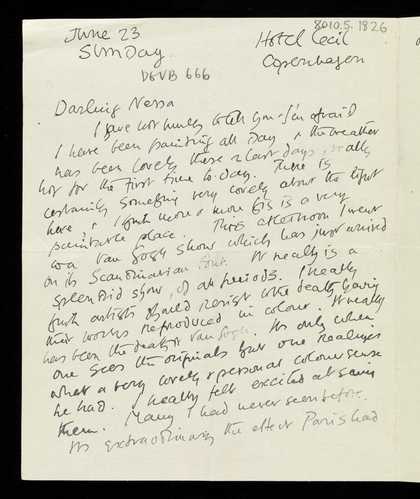 June 23
Sunday
8010.5.1826
Hotel Cecil
Copenhagen
DGVB 666
Darling Nessa
I have not much to tell you I'm afraid
I have been painting all day & the weather
has been lovely these 2 last days, really
hot for the first time to-day. There is
certainly something very lovely about the light
here & I think more & more it is a very
paintable place. This afternoon I went
to a Van Gogh show which has just arrived
on its Scandinavian tour. It really is a
splendid show, of all periods. I really
think artists should resist to the death having
their works reproduced in colour. It really
has been the death of Van Gogh. Its only when
one sees the originals that one realizes
what a very lovely & personal colour sense
he had. I really felt excited at seeing
them. Many I had never seen before.
Its extraordinary the effect Paris had